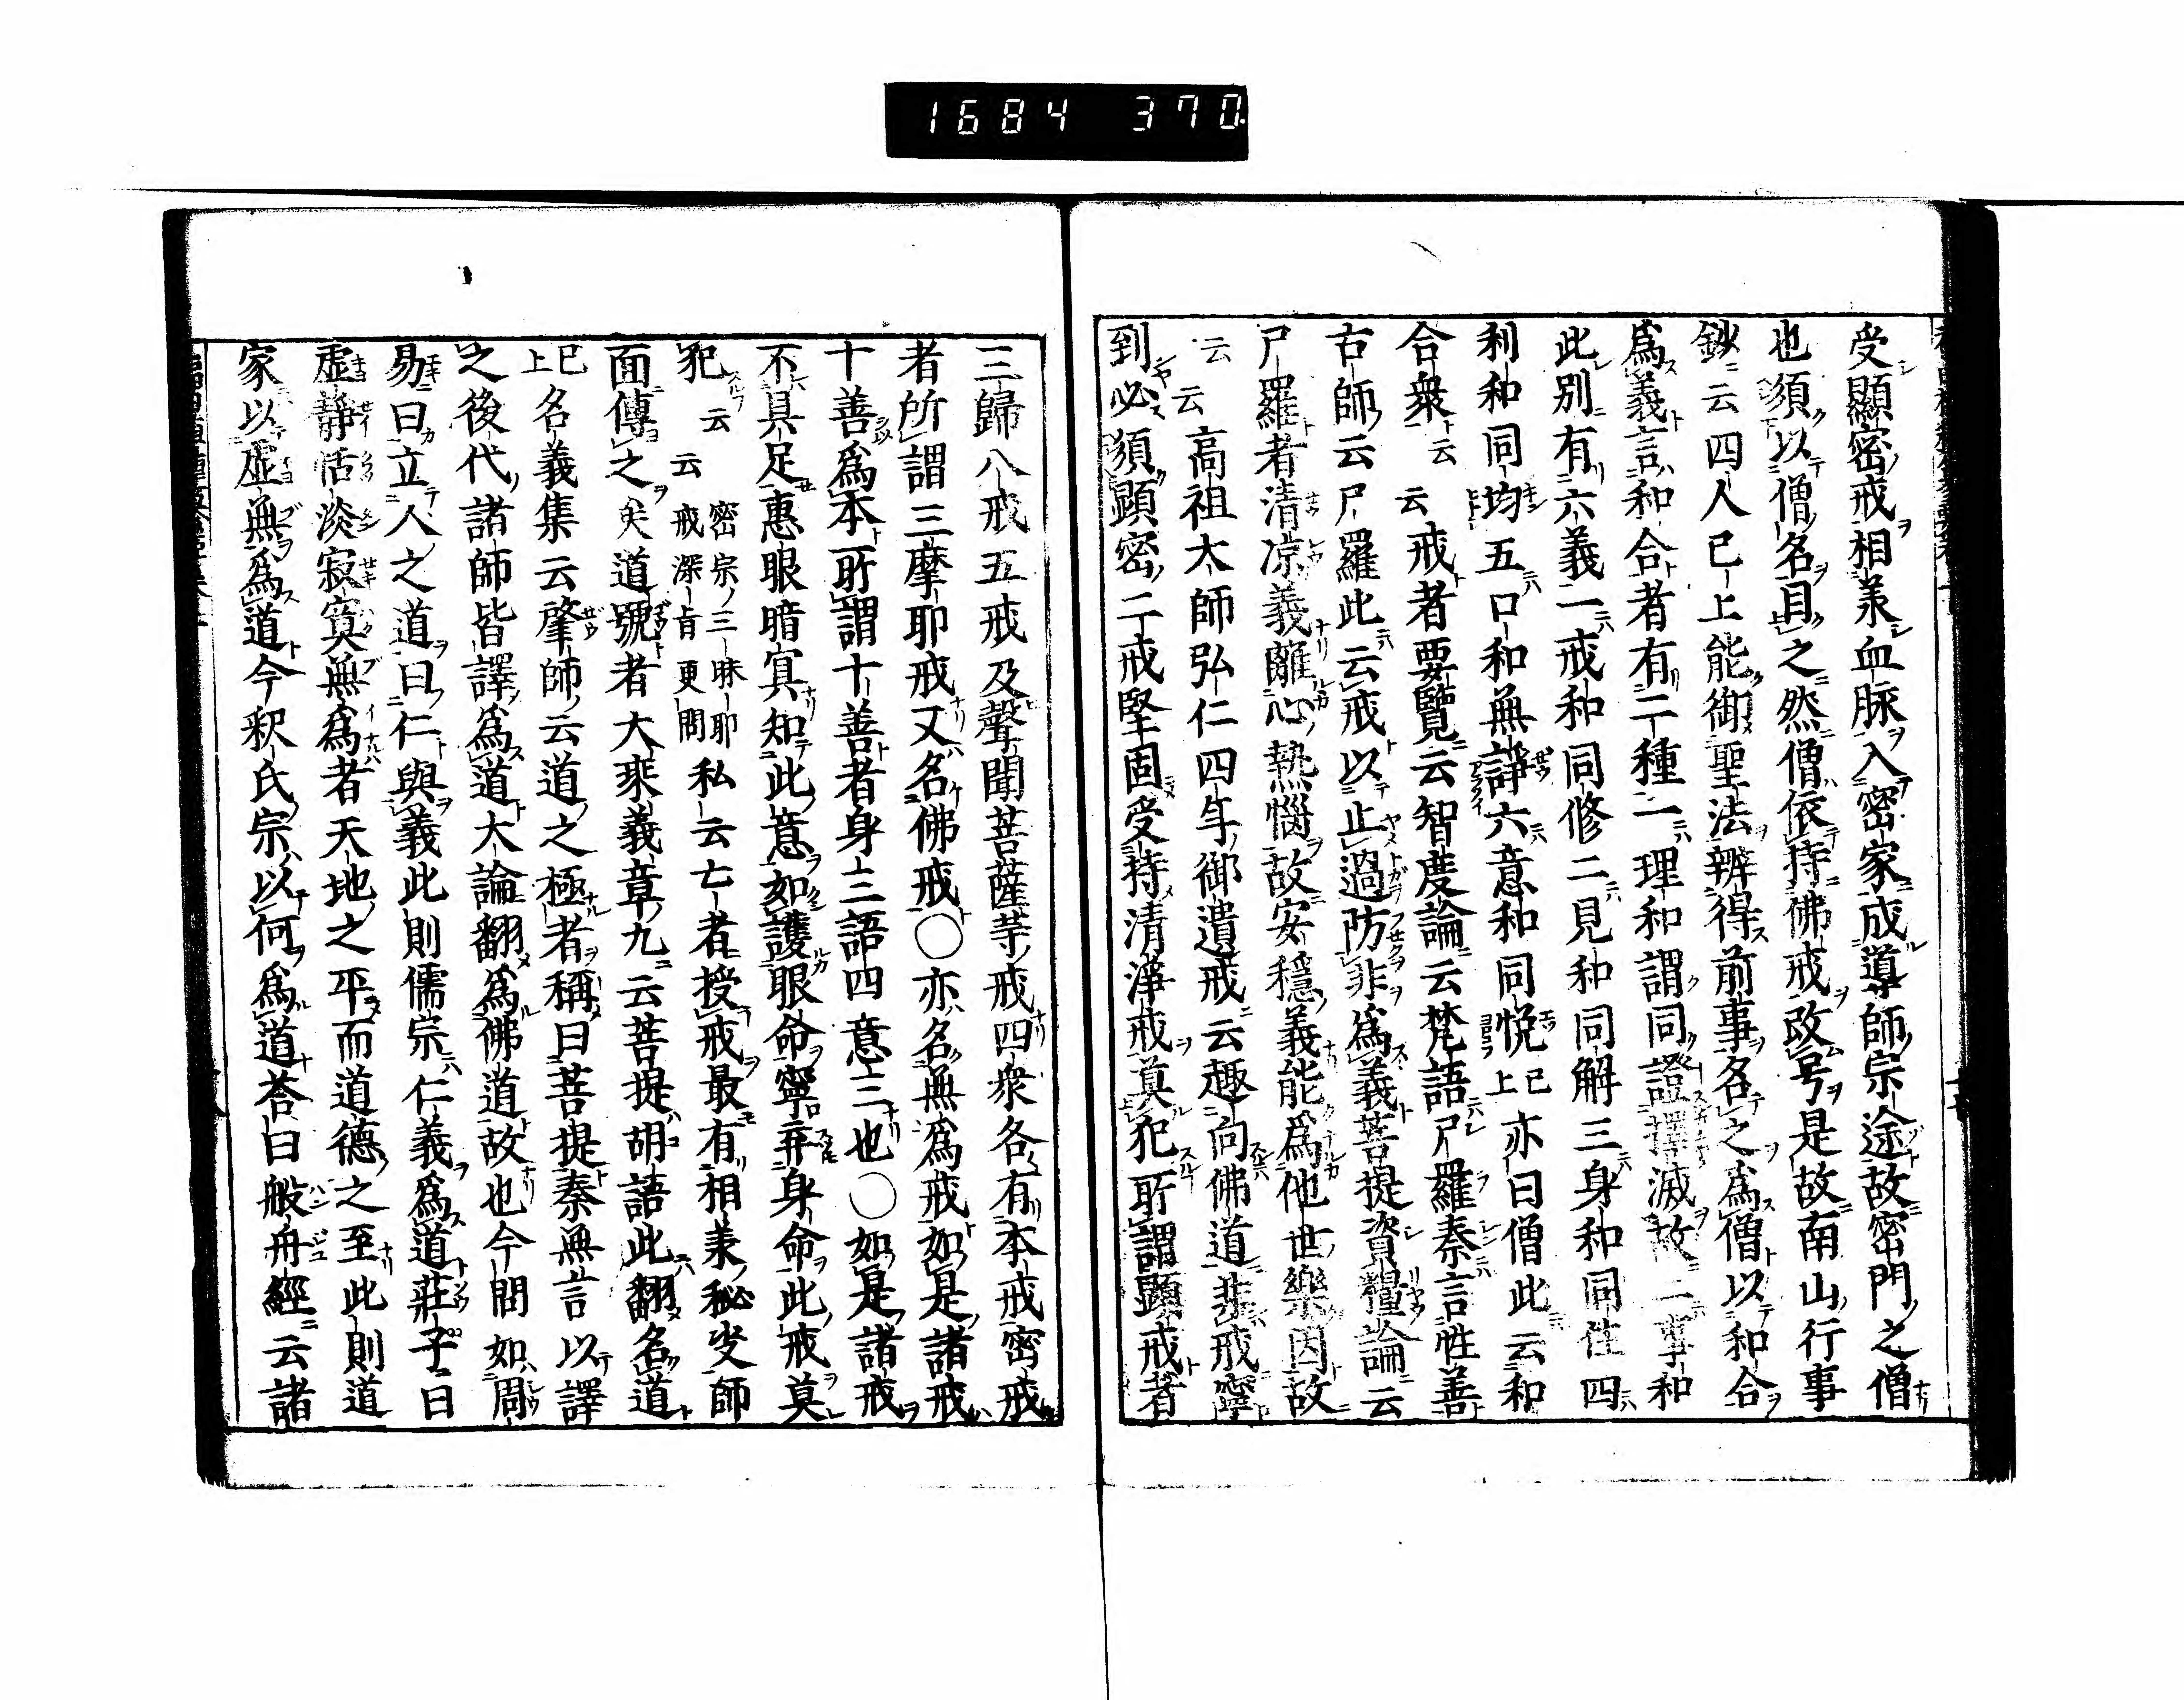 1684 370
受顯密戒相承血脉入密家成導師宗途故密門之僧
也須以僧名目之然僧依持佛戒改号是故南山行事
鈔云四人已上能御聖法辨得前事名之爲僧以和合
爲義言和合者有二種一理和謂同證擇滅故二事和
此別有六義一戒和同修二見和同解三身和同住四
利和同均五口和無諍六意和同悦已上亦曰僧此云和
合衆云云戒者要覽云智度論云梵語尸羅秦言性善
古師云尸羅此云戒以止過防非爲義菩提資糧論云
尸羅者清凉義離心熱惱故安穩義能爲他世樂因故
云云高祖大師弘仁四年御遺戒云趣向佛道非戒寧
到必須顕密二戒堅固受持清淨戒莫犯所謂顕戒者
三歸八戒五戒及聲聞菩薩等戒四衆各有本戒密戒
者所謂三摩耶戒又名佛戒〇亦名無爲戒如是諸戒
十善爲本所謂十善者身三語四意三也〇如是諸戒
不具足惠眼暗寘知此意如護眼命寧弃身命此戒莫
犯云云密宗三昧耶戒深旨更問私云亡者授戒最有相承秘史師
面傳之矣道號者大乘義章九云菩提胡語此翻名道
已上名義集云肇師云道之極者稱曰菩提秦無言以譯
之後代諸師皆譯爲道大論翻爲佛道故也今問如周
易曰立人之道曰仁與義此則儒宗仁義爲道莊子曰
虛静恬淡寂寞無爲者天地之平而道德之至此則道
家以虛無爲道今釈氏宗以何爲道荅曰般舟經云諸